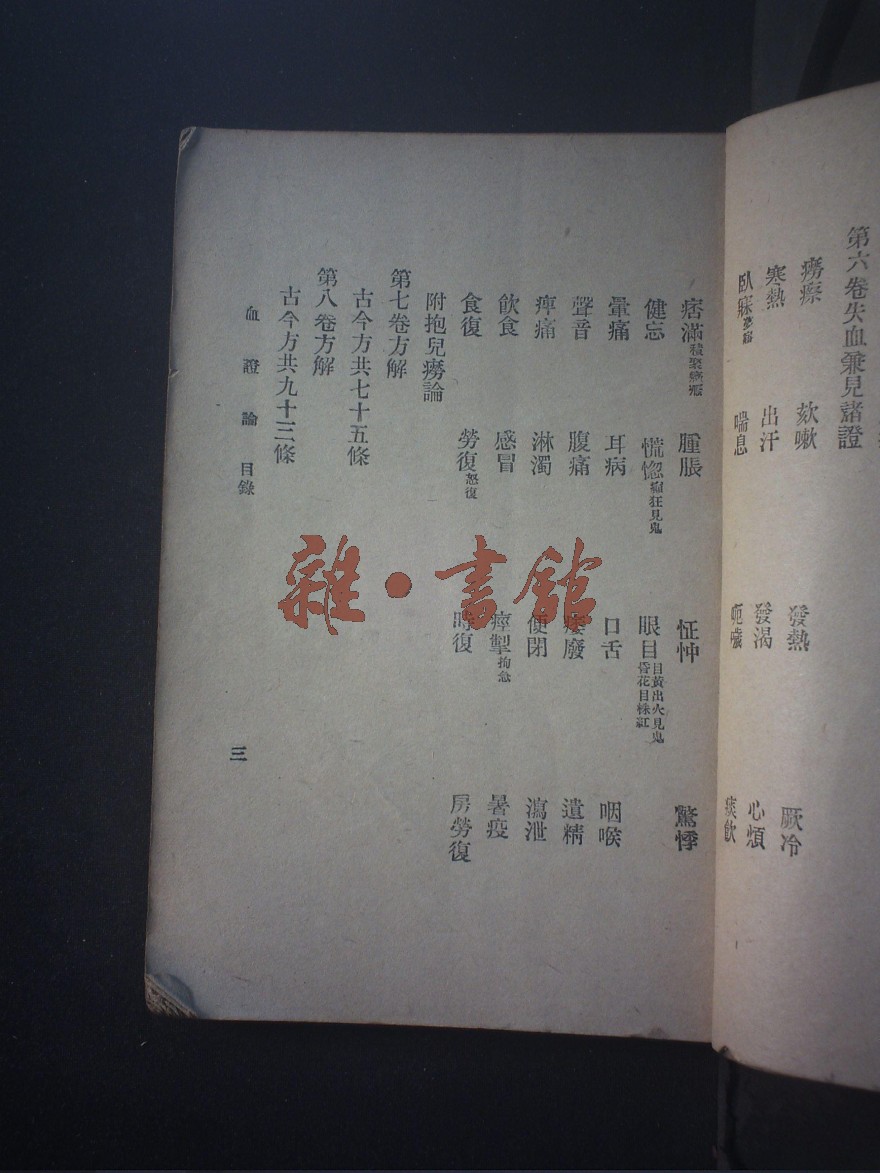 第六卷失血兼見諸證
癆瘵 欬嗽 發熱 厥冷
寒熱 出汗 發渴 心煩
臥寐夢寤 喘息 呃噦 痰飲
痞滿積聚癥瘕 腫脹 怔忡 驚悸
健忘 慌惚癲狂見鬼 眼目目黃出火見鬼昏花目珠紅
暈痛 耳病 口舌 咽喉
聲音 腹痛 痿廢 遺精
痺痛 淋濁 便閉 瀉泄
飲食 感冒 痙掣拘急 暑疫
食復 勞復怒復 時復 房勞復
附抱兒癆論
第七卷方解
古今方共七十五條
第八卷方解
古今方共九十三條
血證論 目錄 三
雜·書館